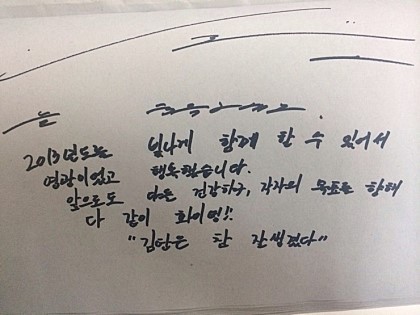 2013년도는 빛나게 함께 할 수 있어서
영광이었고 행복했습니다.
앞으로도 건강하고, 각자의 목표를 향해
다 같이 화이팅!!
"김탄은 참 잘생겼다"